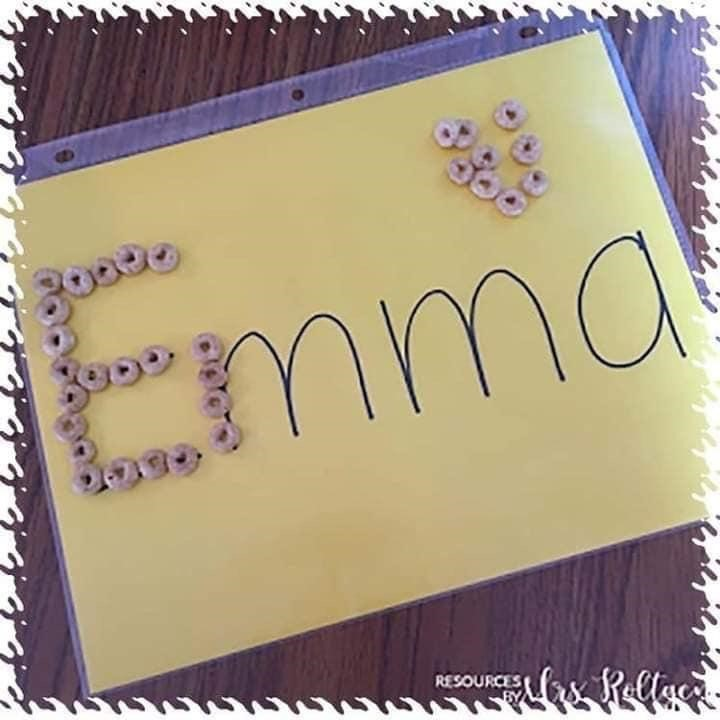 Emma
RESOURCES
BY Mrs. Roltgen